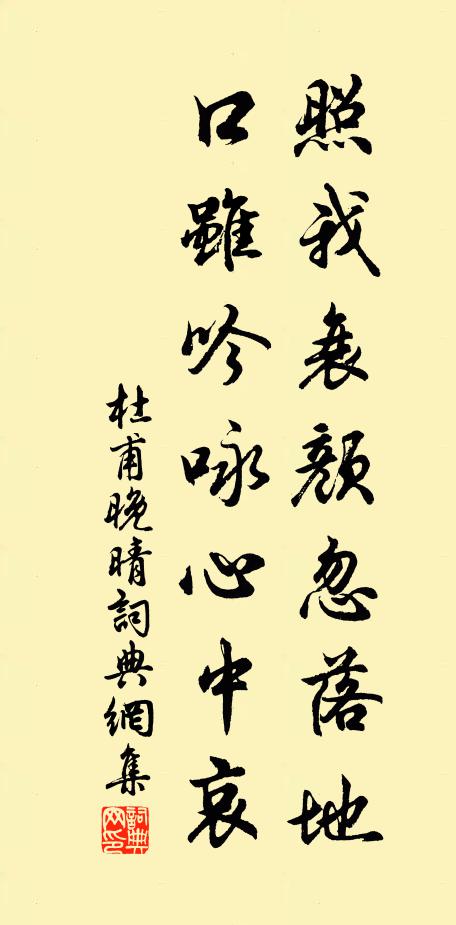 照我衰顏忽落地
口雖吟咏心中哀
杜甫晚晴詞典網集
詞典網印